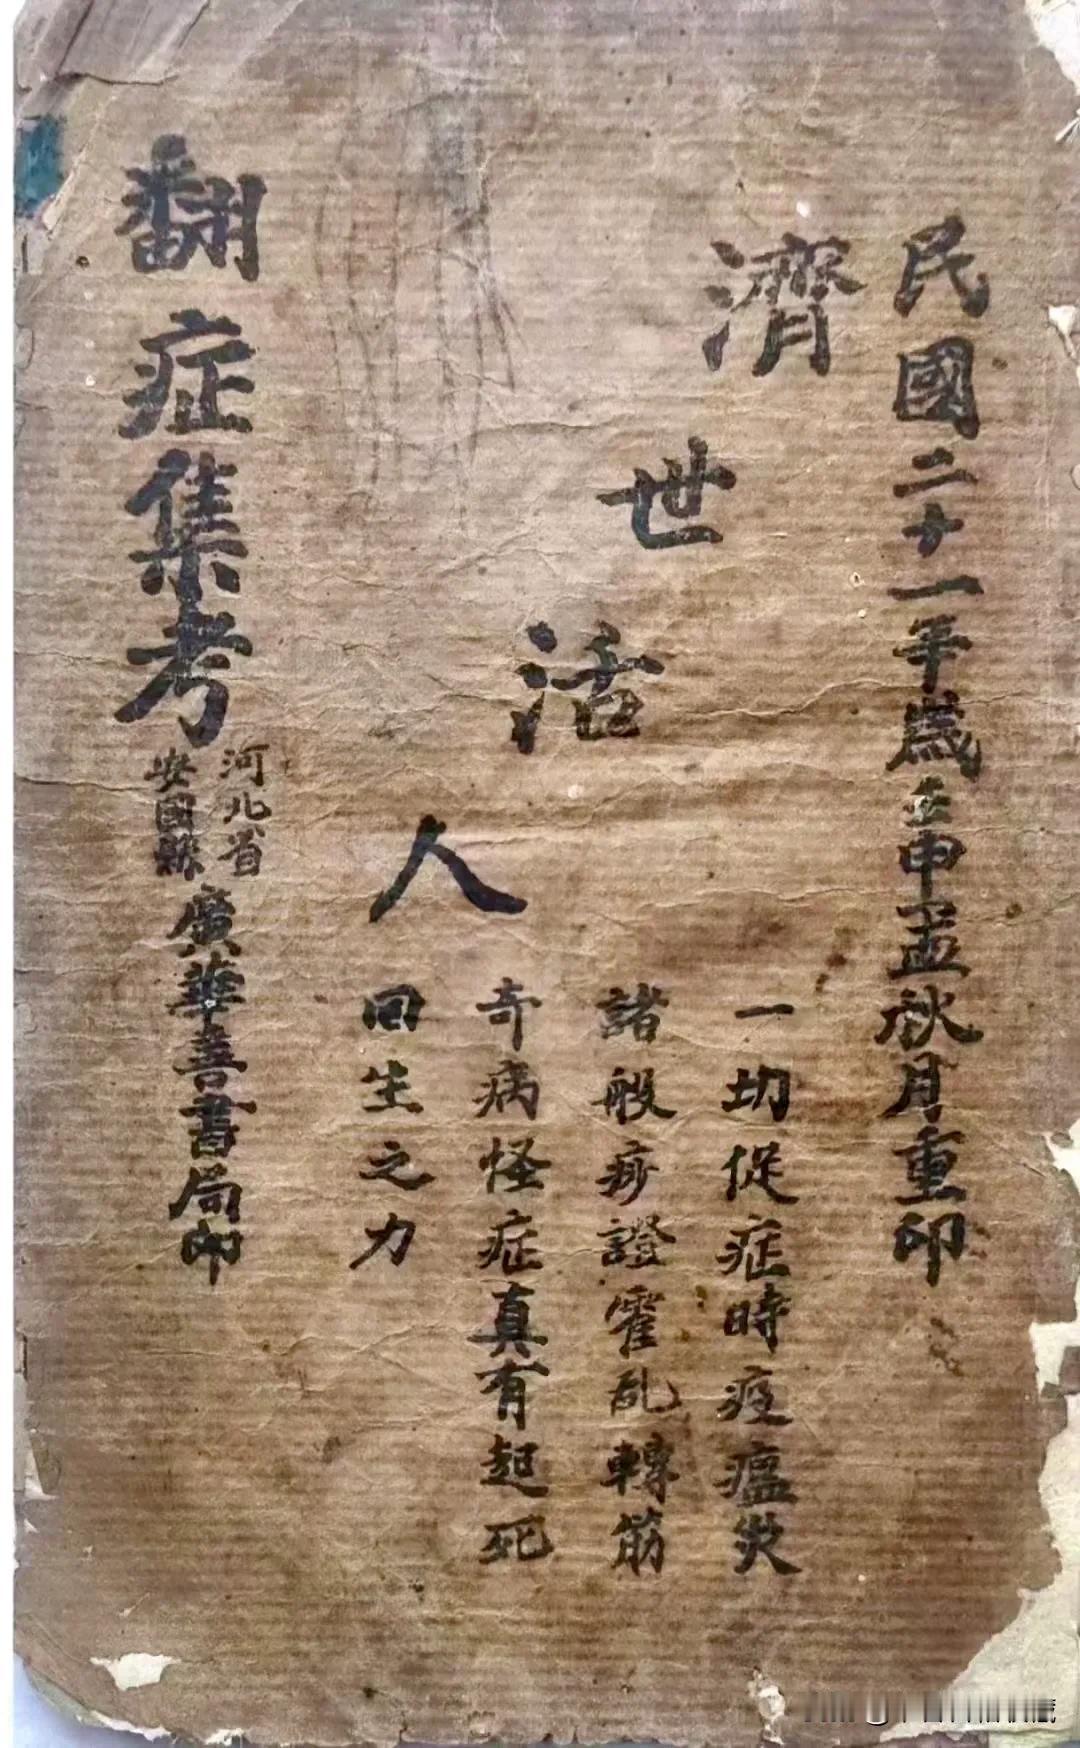 民國二十一年歲壬申孟秋月重印
濟世活人
一切促症時疫瘟災
諸般痧證霍乱轉筋
奇病怪症真有起死
回生之力
翻症集考
河北省
安國縣
廣華善書局印